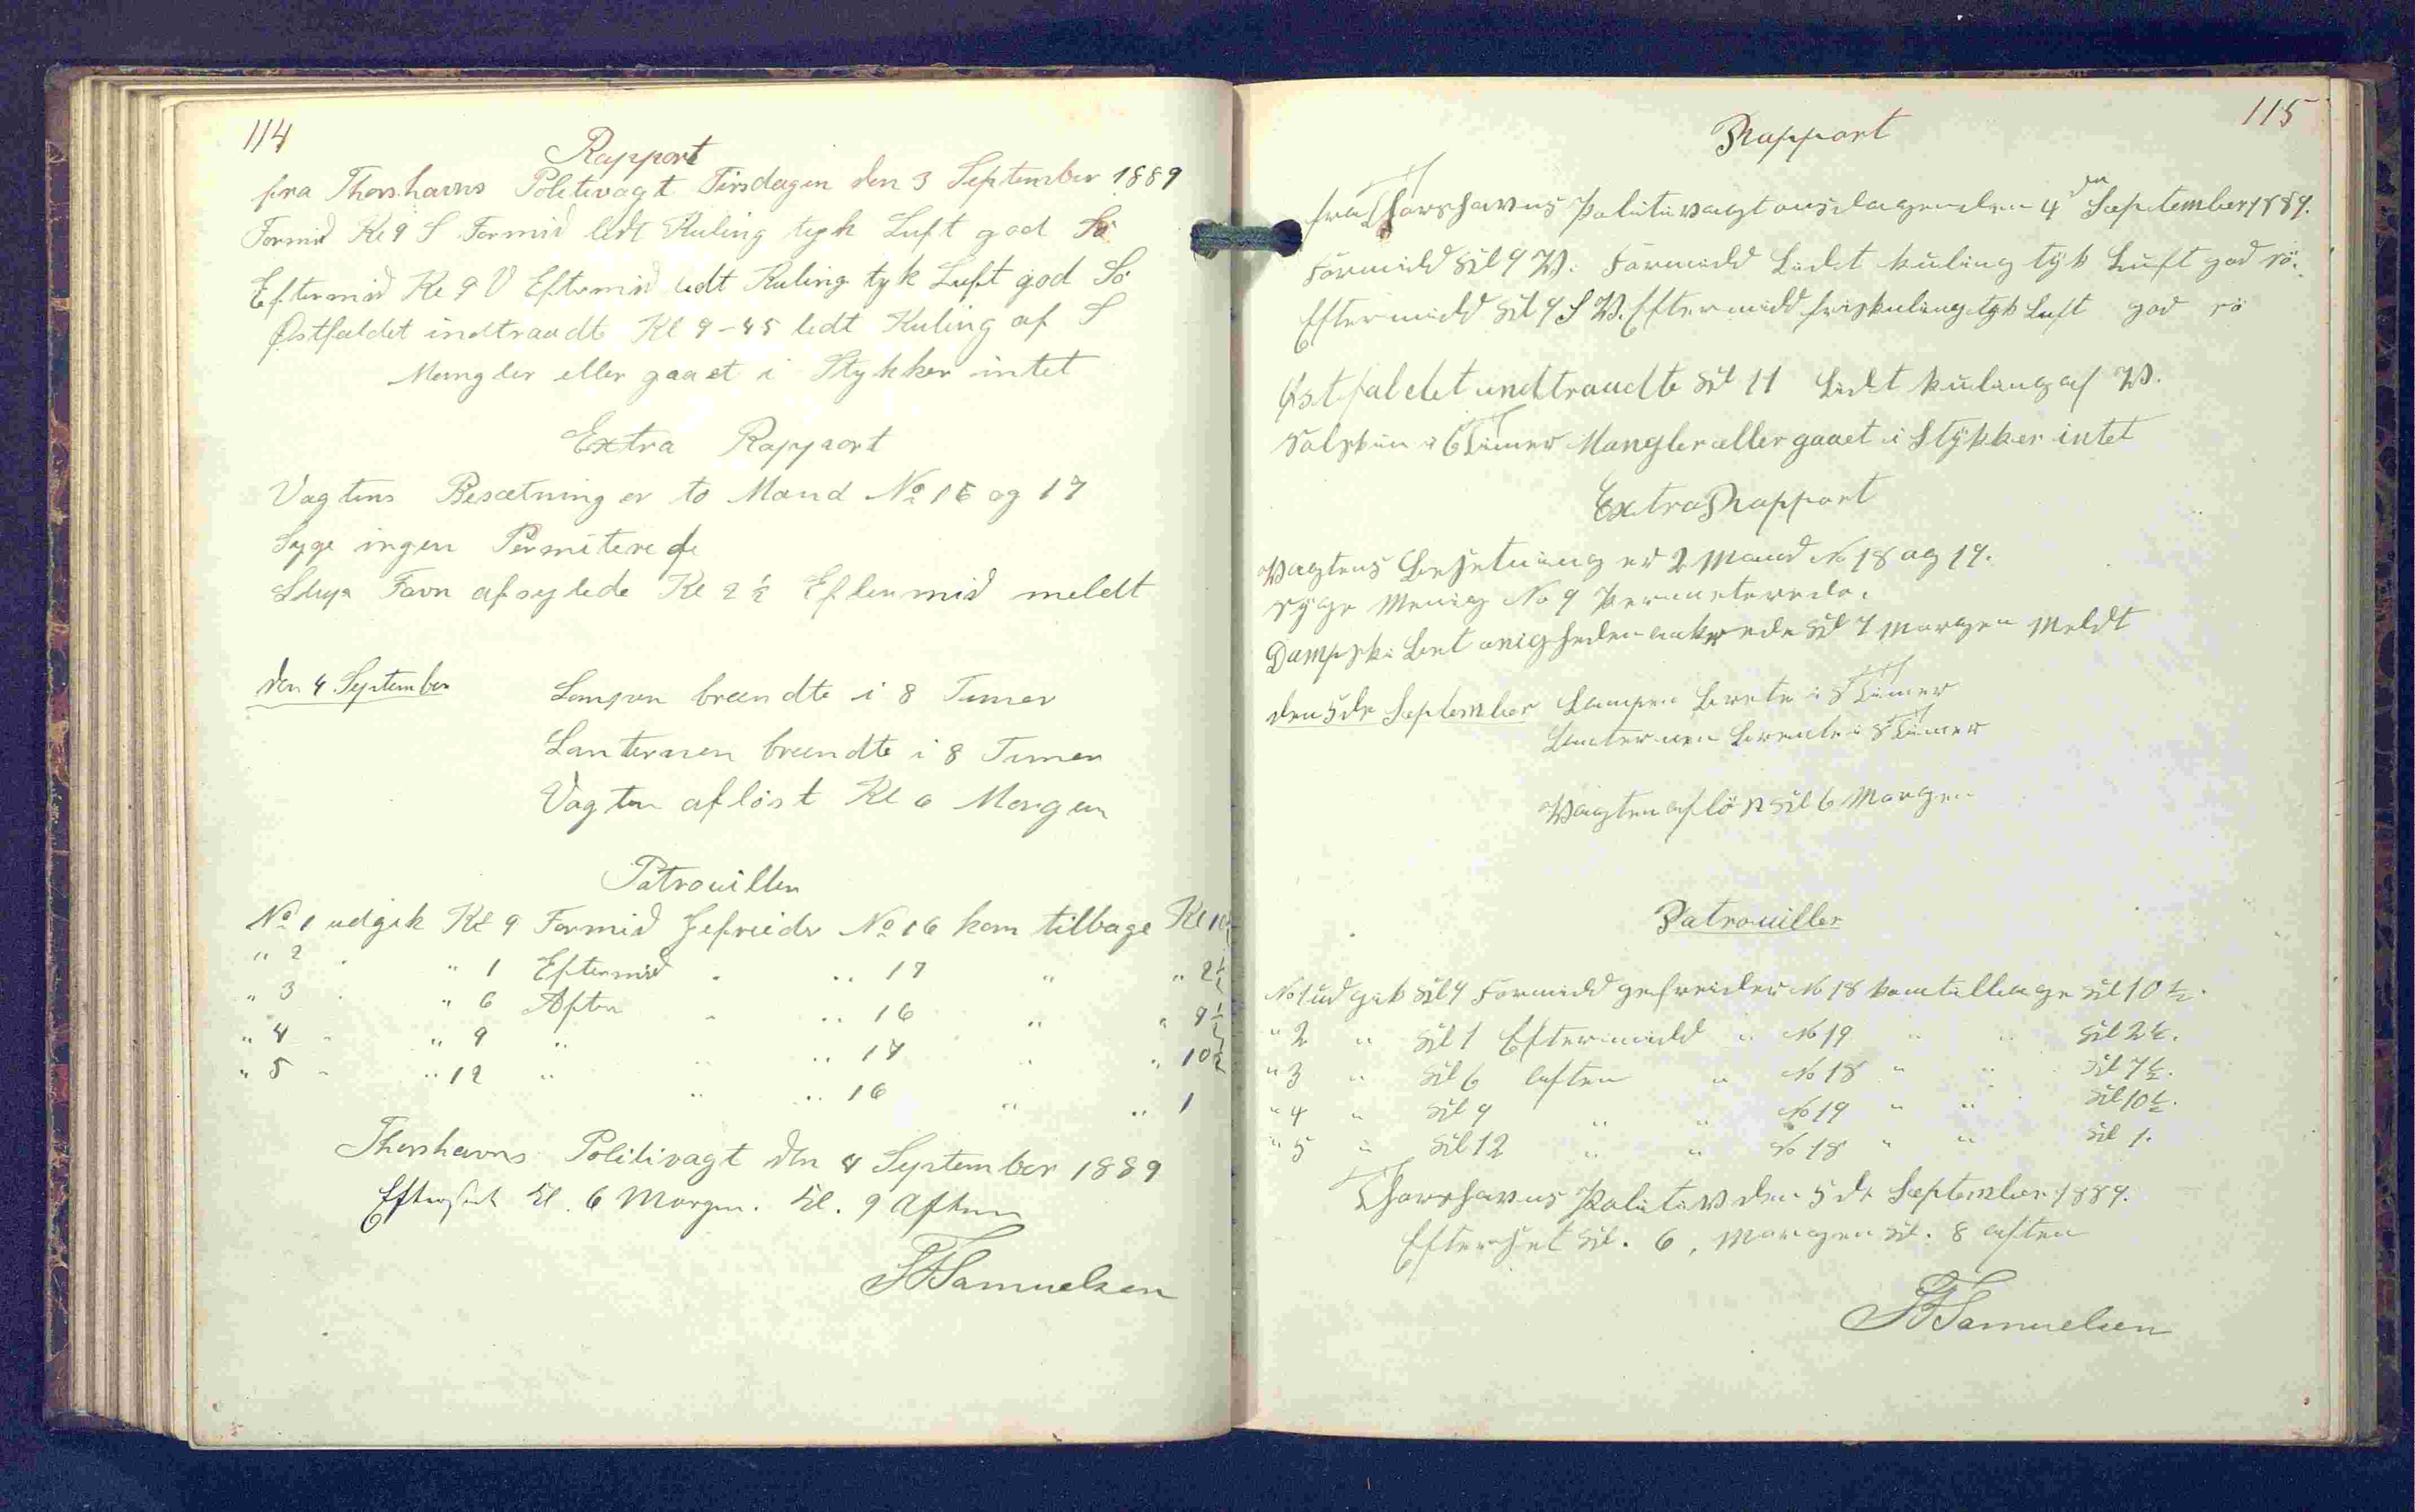 114
Rapport
fra Thorshavns Politivagt Tirsdagen den 3 September 1889
Formid Kl 9 S Formid lidt Kuling tyk Luft god Sö
Eftermid Kl 9 V Eftermid lidt Kuling tyk Luft god Sö
Østfaldet indtraadte Kl 9-45 lidt Kuling af S
Mangler eller gaaet i Stykker intet
Extra Rapport
Vagtens Besætning er to Mand No 16 og 17
Syge ingen Permiterede
Slup Favn afsejlede Kl 2½ Eftermid meldt
den 4 September Lampen brændte i 8 Timer
Lanternen brændte i 8 Timer
Vagten aflöst Kl 6 Morgen
Patrouiller
No 1 udgik Kl 9 Formid Gefreider No 16 kom tilbage Kl 10½
" 2 " " 1 Eftermid " " 17 " " 2½
" 3 " " 6 Aften " " 16 " "
" 4 " " 9 " " " 17 " " 10½
" 5 " " 12 " " " 16 " " 1
Thorshavns Politivagt den 4 September 1889
Efterseet Kl. 6 Morgen. Kl. 9 Aften
Samuelsen
115
Rapport
fra Thorshavns Politivagt onsdagen den 4 de September 1889.
Formidd Kl 9 V. Formidd Lidt kuling tyk Luft god sö.
Eftermidd Kl 9 S V. Eftermidd friskuling tyk Luft god sö
Østfaldet indtraadte Kl 11 Lidt kuling af V.
Solskin i 6 Timer Mangler eller gaaet i Stykker intet
Extra Rapport
Vagtens Besetning er 2 Mand No 18 og 19.
syge Menig No 9 Permeterede.
Dampski bet ankrede Kl 7 Morgen Meldt
den 5 de September Lampen brente i 8 Timer
Lanternen brente i 8 Timer
Vagten aflöst Kl 6 Morgen
Patrouiller
No 1 udgik Kl 9 Formidd gefreider No 18 kom tilbage Kl 10½.
" 2 " Kl 1 Eftermidd " No 19 " " Kl 2½.
" 3 " Kl 6 aften " No 18 " " Kl 7½.
" 4 " Kl 9 " " No 19 " " Kl 10½.
" 5 " Kl 12 " " No 18 " " Kl 1.
Thorshavns Politiv den 5 de September 1889.
Efterset Kl. 6, Morgen Kl. 8 aften
Samuelsen